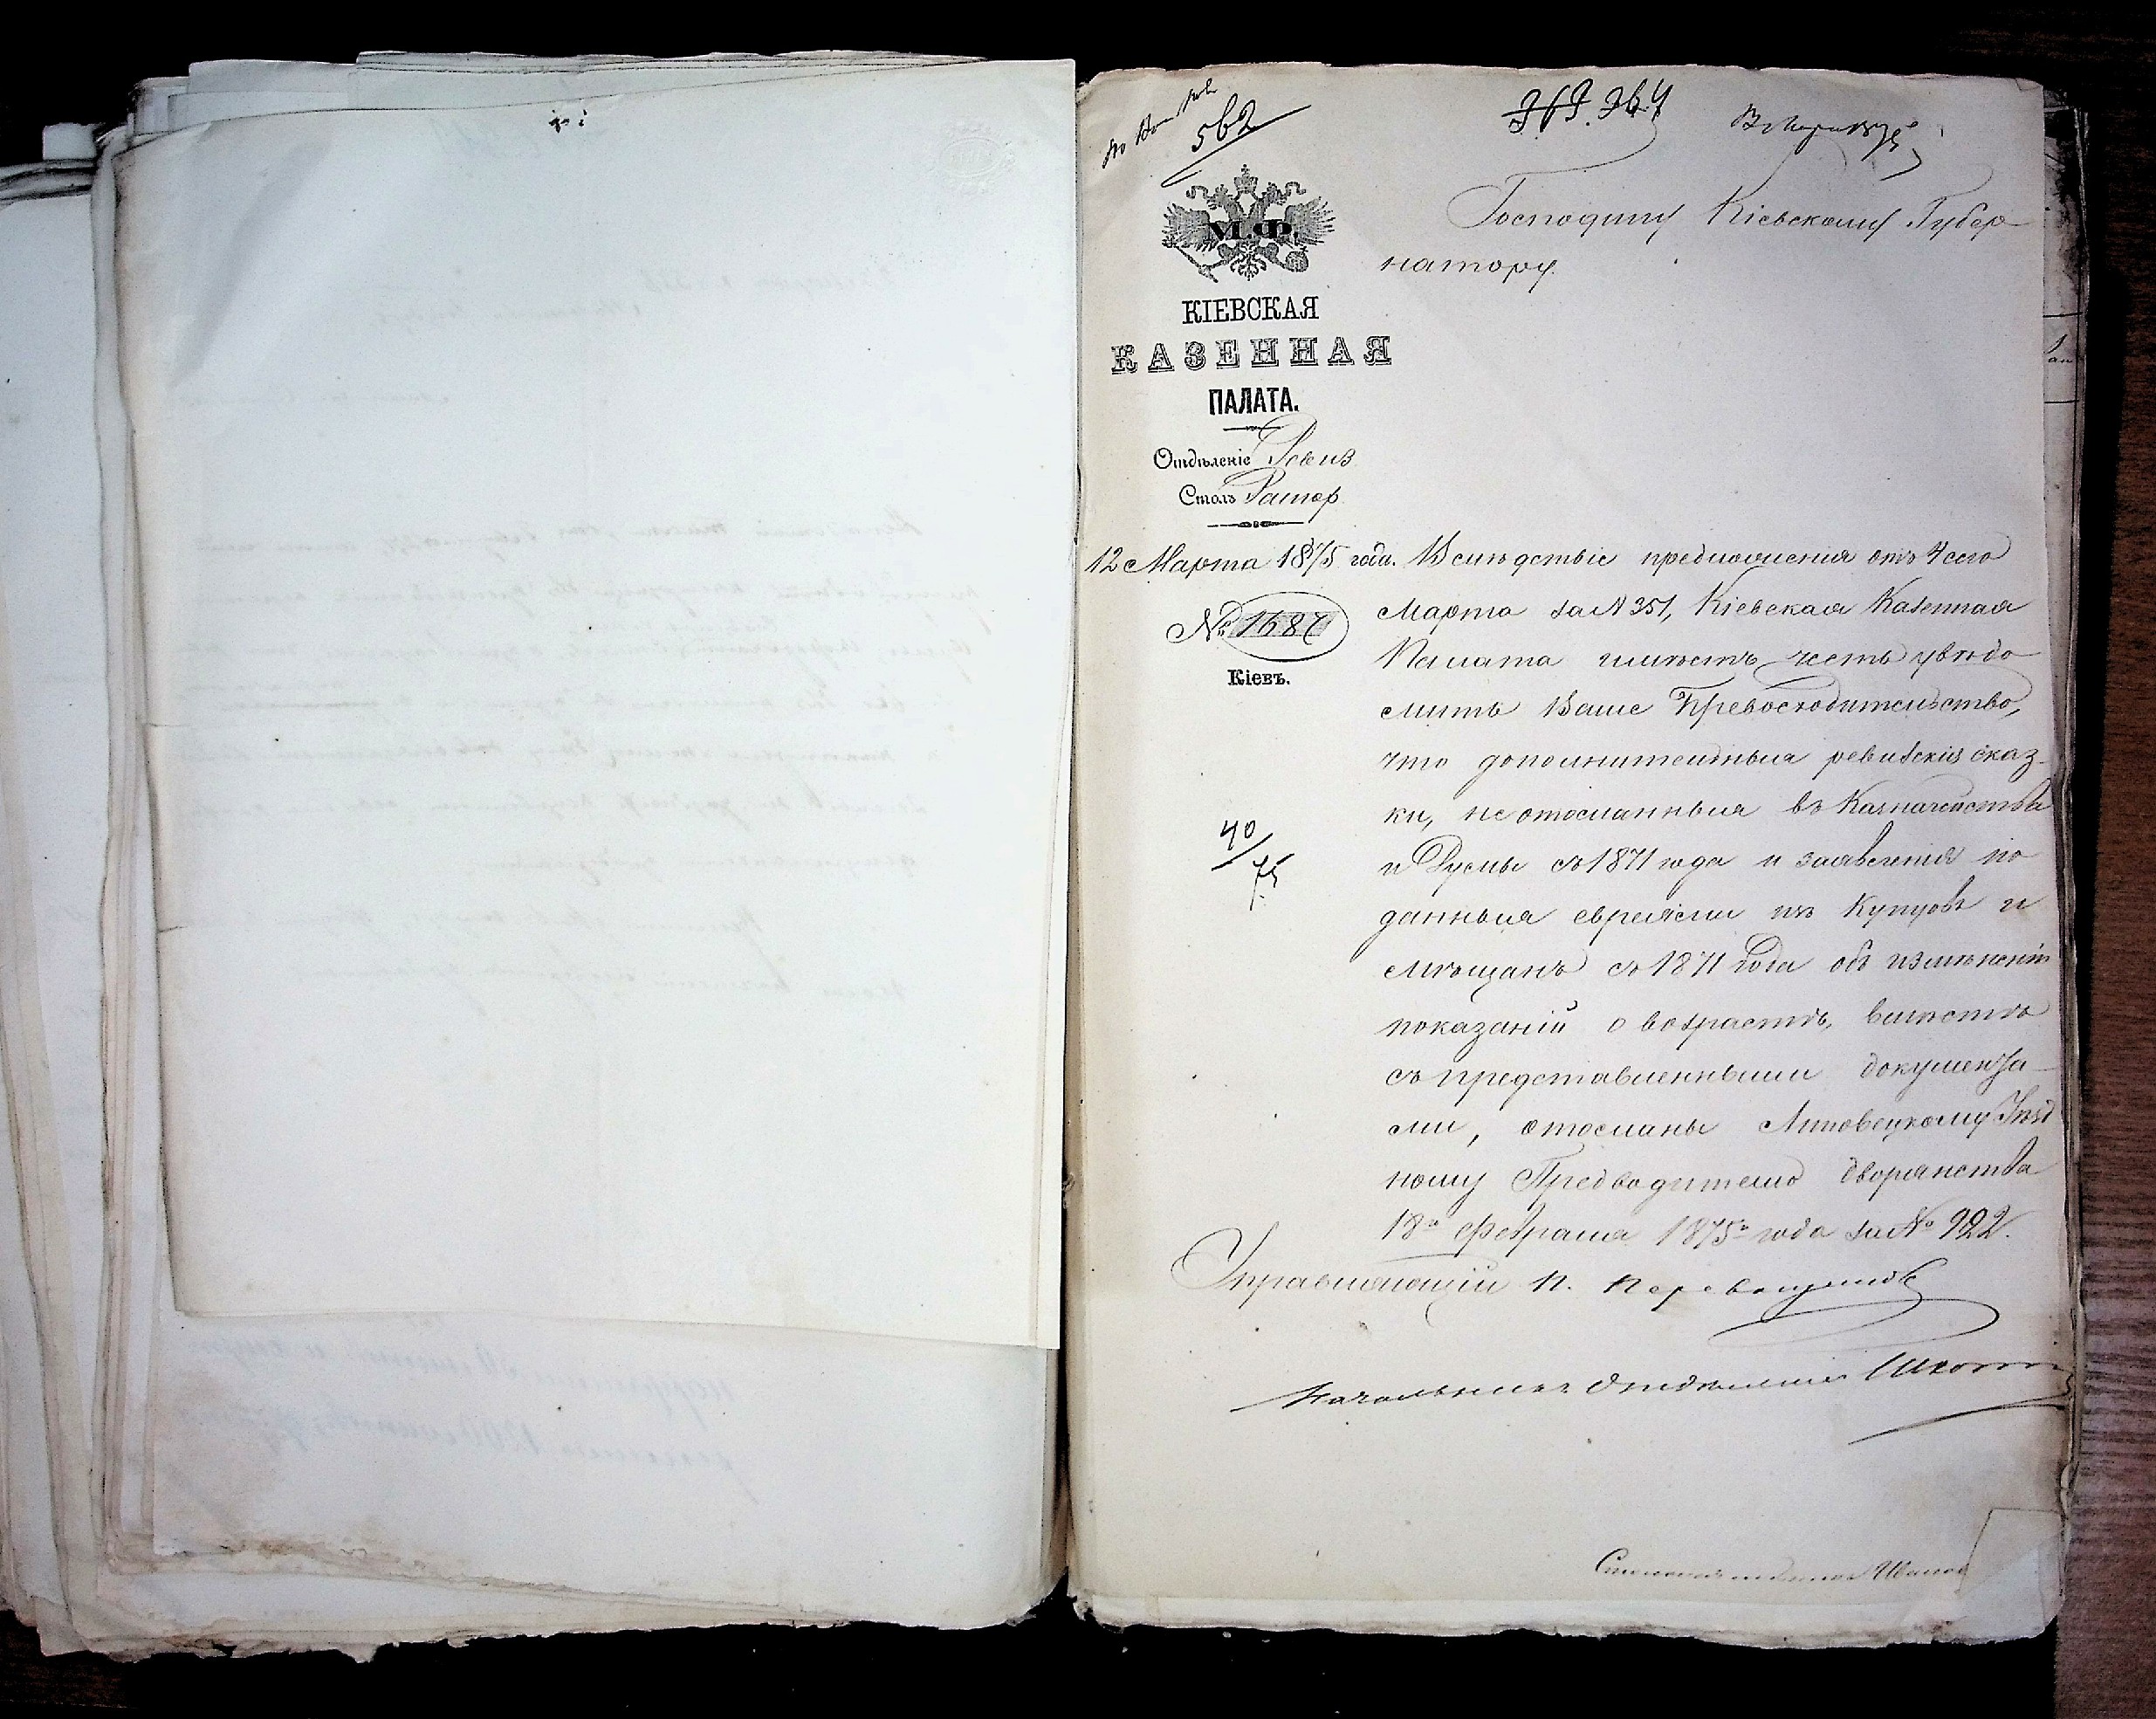 562
364
Господину Кіевскому Губер
натору.
М.Ф.
КІЕВСКАЯ
КАЗЕННАЯ
ПАЛАТА.
Отдѣленіе Ревиз
Столъ
12 Марта 1875 года. Вслѣдствіе предложенія отъ 4 сего
Марта за № 351, Кіевская Казенная
№ 1687
Палата имѣетъ честь увѣдо
Кіевъ.
мить Ваше Превосходительство,
что дополнительныя ревизскія сказ-
ки, не отосланныя въ Казначейства
40/75
и Думы съ 1871 года и заявленія по
данныя евреями изъ купцовъ и
мѣщанъ съ 1871 года объ измѣненіи
показаній о возрастѣ, вмѣстѣ
съ представленными документа-
ми, отосланы Липовецкому Уѣзд
ному Предводителю дворянства
18го февраля 1875го года за № 922.
Управляющій П.
Начальникъ Отдѣленія